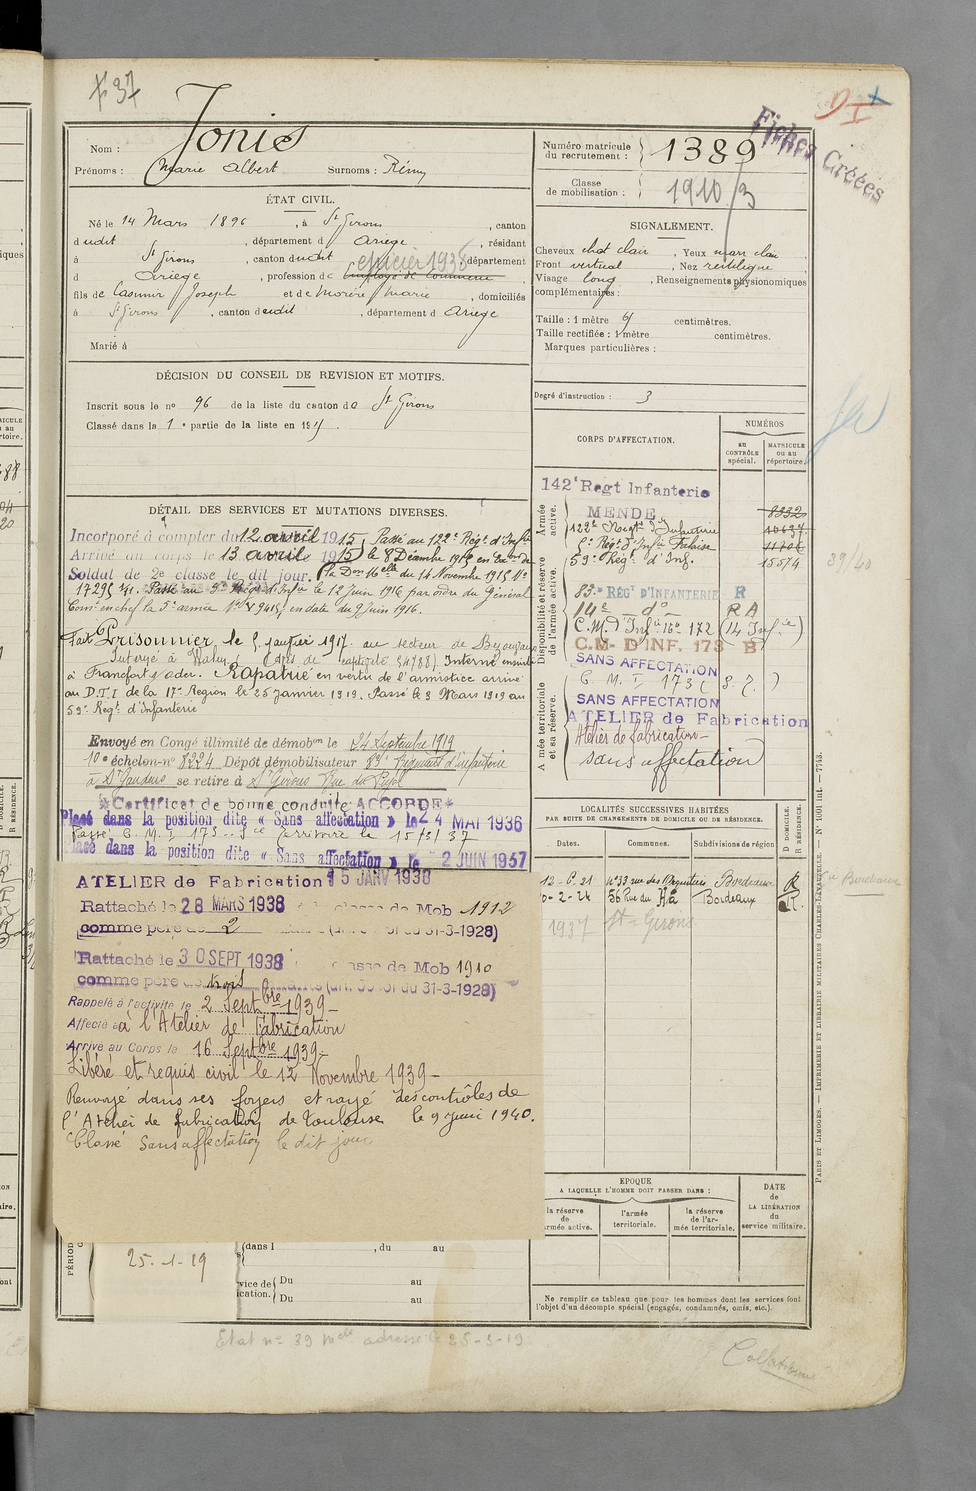 Jonis
Nom :
Prénoms : Marie Albert Surnoms : Rémy
ÉTAT CIVIL.
Né le 14 Mars 1896, à St Girons, canton
dudit, département d Ariege, résidant
à St Girons, canton dudit épicier 1938 département
d Ariege, profession de employé de commerce,
fils de Casimir Joseph et de Morère Marie, domiciliés
à St Girons, canton dudit, département d Ariege
Marié à
DÉCISION DU CONSEIL DE REVISION ET MOTIFS.
Inscrit sous le no 96 de la liste du canton de St Girons
Classé dans la 1e partie de la liste en 191
DÉTAIL DES SERVICES ET MUTATIONS DIVERSES.
Incorporé à compter du 12 avril 1915 Passé au 122e Régt d'Inftie
Arrivé au corps le 13 avril 1915 le 8 Décembre 1915 en
Soldat de 2e classe le dit jour. la Don 16elle du 14 Novembre 1915 No
17295 Passé au d'Infie le 12 Juin 1916 par ordre du Général
Comt en chef la 5e armée No 9415 en date du 9 Juin 1916.
Fait Prisonnier le 5 Janvier 1917 au secteur de
Interné à Wahn Interné ensuite
à Francfort s/ oder. Rapatrié en vertu de l'armistice arrivé
au D.T.I de la 17e Région le 25 Janvier 1919. Passé le 3 Mars 1919 au
59e Régt d'Infanterie
Envoyé en Congé illimité de démobon le 24 Septembre 1919
10e échelon no 8224 Dépôt démobilisateur 83e Régiment d'infanterie
à St Gaudens se retire à St Girons Rue du Pujol
Certificat de bonne conduite ACCORDÉ
Placé dans la position dite « Sans affectation » le 24 MAI 1936
Passé C. M. I 173 territoire le 15/3/37
Placé dans la position dite « Sans affectation » le 2 JUIN 1937
ATELIER de Fabrication 15 JANV 1938
Rattaché le 28 MARS 1938 à la classe de Mob 1912
comme père de 2 du 31-3-1928)
Rattaché le 30 SEPT 1938 classe de Mob 1910
comme père de trois du 31-3-1928)
Rappelé à l'activité le 2 Septbre 1939 -
Affecté à à l'Atelier de Fabrication
Arrivé au Corps le 16 Septbre 1939 -
Libéré et requis civil le 12 Novembre 1939 -
Renvoyé dans ses foyers et rayé des contrôles de
l'Atelier de fabrication de Toulouse le 9 juin 1940.
Classé Sans affectation le dit jour
25-1-19
(dans l , du au
vice de Du au
ication. Du au
Etat no 39 adressé le 25-3-19
Numéro matricule du recrutement : 1389
Classe de mobilisation : 1910/3
Fiches Créées
SIGNALEMENT.
Cheveux chat clair, Yeux marr clair
Front vertical, Nez rectiligne
Visage long, Renseignements physionomiques
complémentaires :
Taille : 1 mètre 61 centimètres.
Taille rectifiée : 1 mètre centimètres.
Marques particulières :
Degré d'instruction : 3
CORPS D'AFFECTATION.
NUMÉROS
au CONTRÔLE spécial.
MATRICULE ou au répertoire.
Armée active.
Disponibilité et réserve de l'armée active.
Armée territoriale et sa réserve.
142e Régt Infanterie
MENDE 8332
122e Régt d'Infanterie 10637
5e Régt d'Infie Falaise 11706
59e Régt d'Inf. 15574
39/40
83e RÉGt D'INFANTERIE R
14e do R A
C.M. d'Infie 16e 172 (14 Infie)
C.M. D'INF. 173 B
SANS AFFECTATION
C. M. I. 173 (S. P. )
SANS AFFECTATION
ATELIER de Fabrication
Atelier de fabrication -
sans affectation
LOCALITÉS SUCCESSIVES HABITÉES
PAR SUITE DE CHANGEMENTS DE DOMICILE OU DE RÉSIDENCE.
Dates. Communes. Subdivisions de région
D DOMICILE.
R RÉSIDENCE.
12-6-21 no 33 rue des Bordeaux R
0-2-24 56 Rue du Hâ Bordeaux R.
1937 St-Girons
EPOQUE
A LAQUELLE L'HOMME DOIT PASSER DANS :
la réserve de l'armée active.
l'armée territoriale.
la réserve de l'armée territoriale.
DATE de LA LIBÉRATION du service militaire.
Ne remplir ce tableau que pour les hommes dont les services font
l'objet d'un décompte spécial (engagés, condamnés, omis, etc.).
PARIS ET LIMOGES. — IMPRIMERIE ET LIBRAIRIE MILITAIRES CHARLES-LAVAUZELLE. — No 1001 int. — 7743.